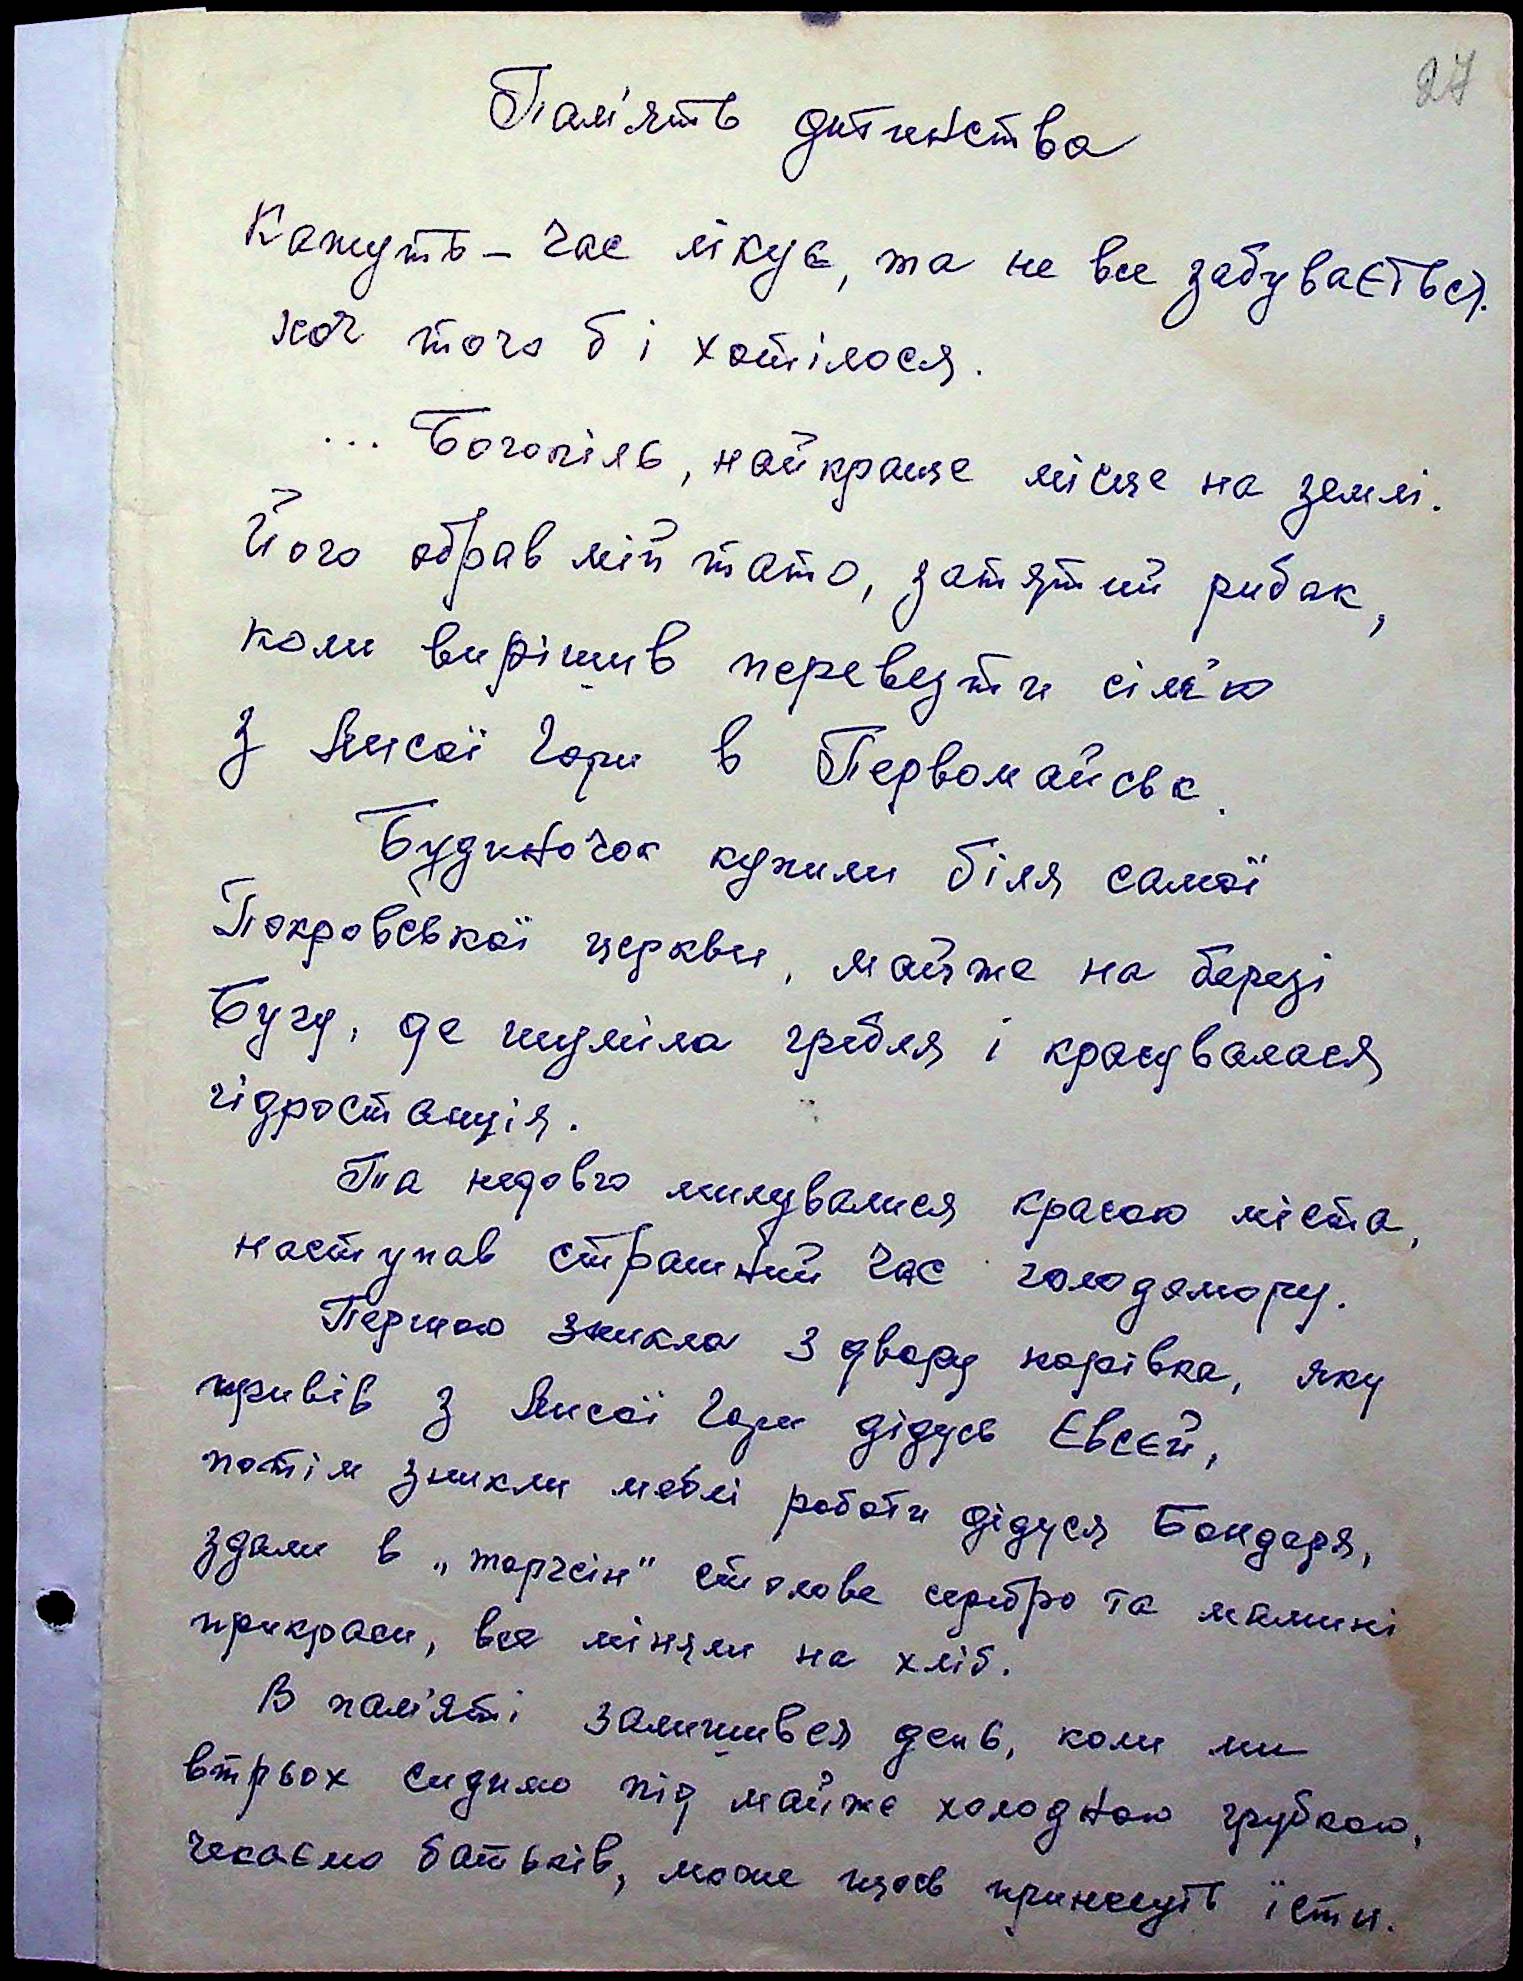 27
Пам'ять дитинства
Кажуть – час лікує, та не все забувається.
хоч того б і хотілося.
... Богопіль, найкраще місце на землі.
Його обрав мій тато, затятий рибак,
коли вирішив перевезти сім'ю
з Лисої Гори в Первомайськ.
Будиночок купили біля самої
Покровської церкви, майже на березі
Бугу, де шуміла гребля і красувалася
гідростанція.
Та недовго милувалися красою міста,
наступав страшний час голодомору.
Першою зникла з двору корівка, яку
привів з Лисої Гори дідусь Євсєй,
потім зникли меблі роботи дідуся Бондаря,
здали в „торгсін" столове серебро та мамині
прикраси, все міняли на хліб.
В пам'яті залишився день, коли ми
втрьох сидимо під майже холодною грубкою,
чекаємо батьків, може щось принесуть їсти.